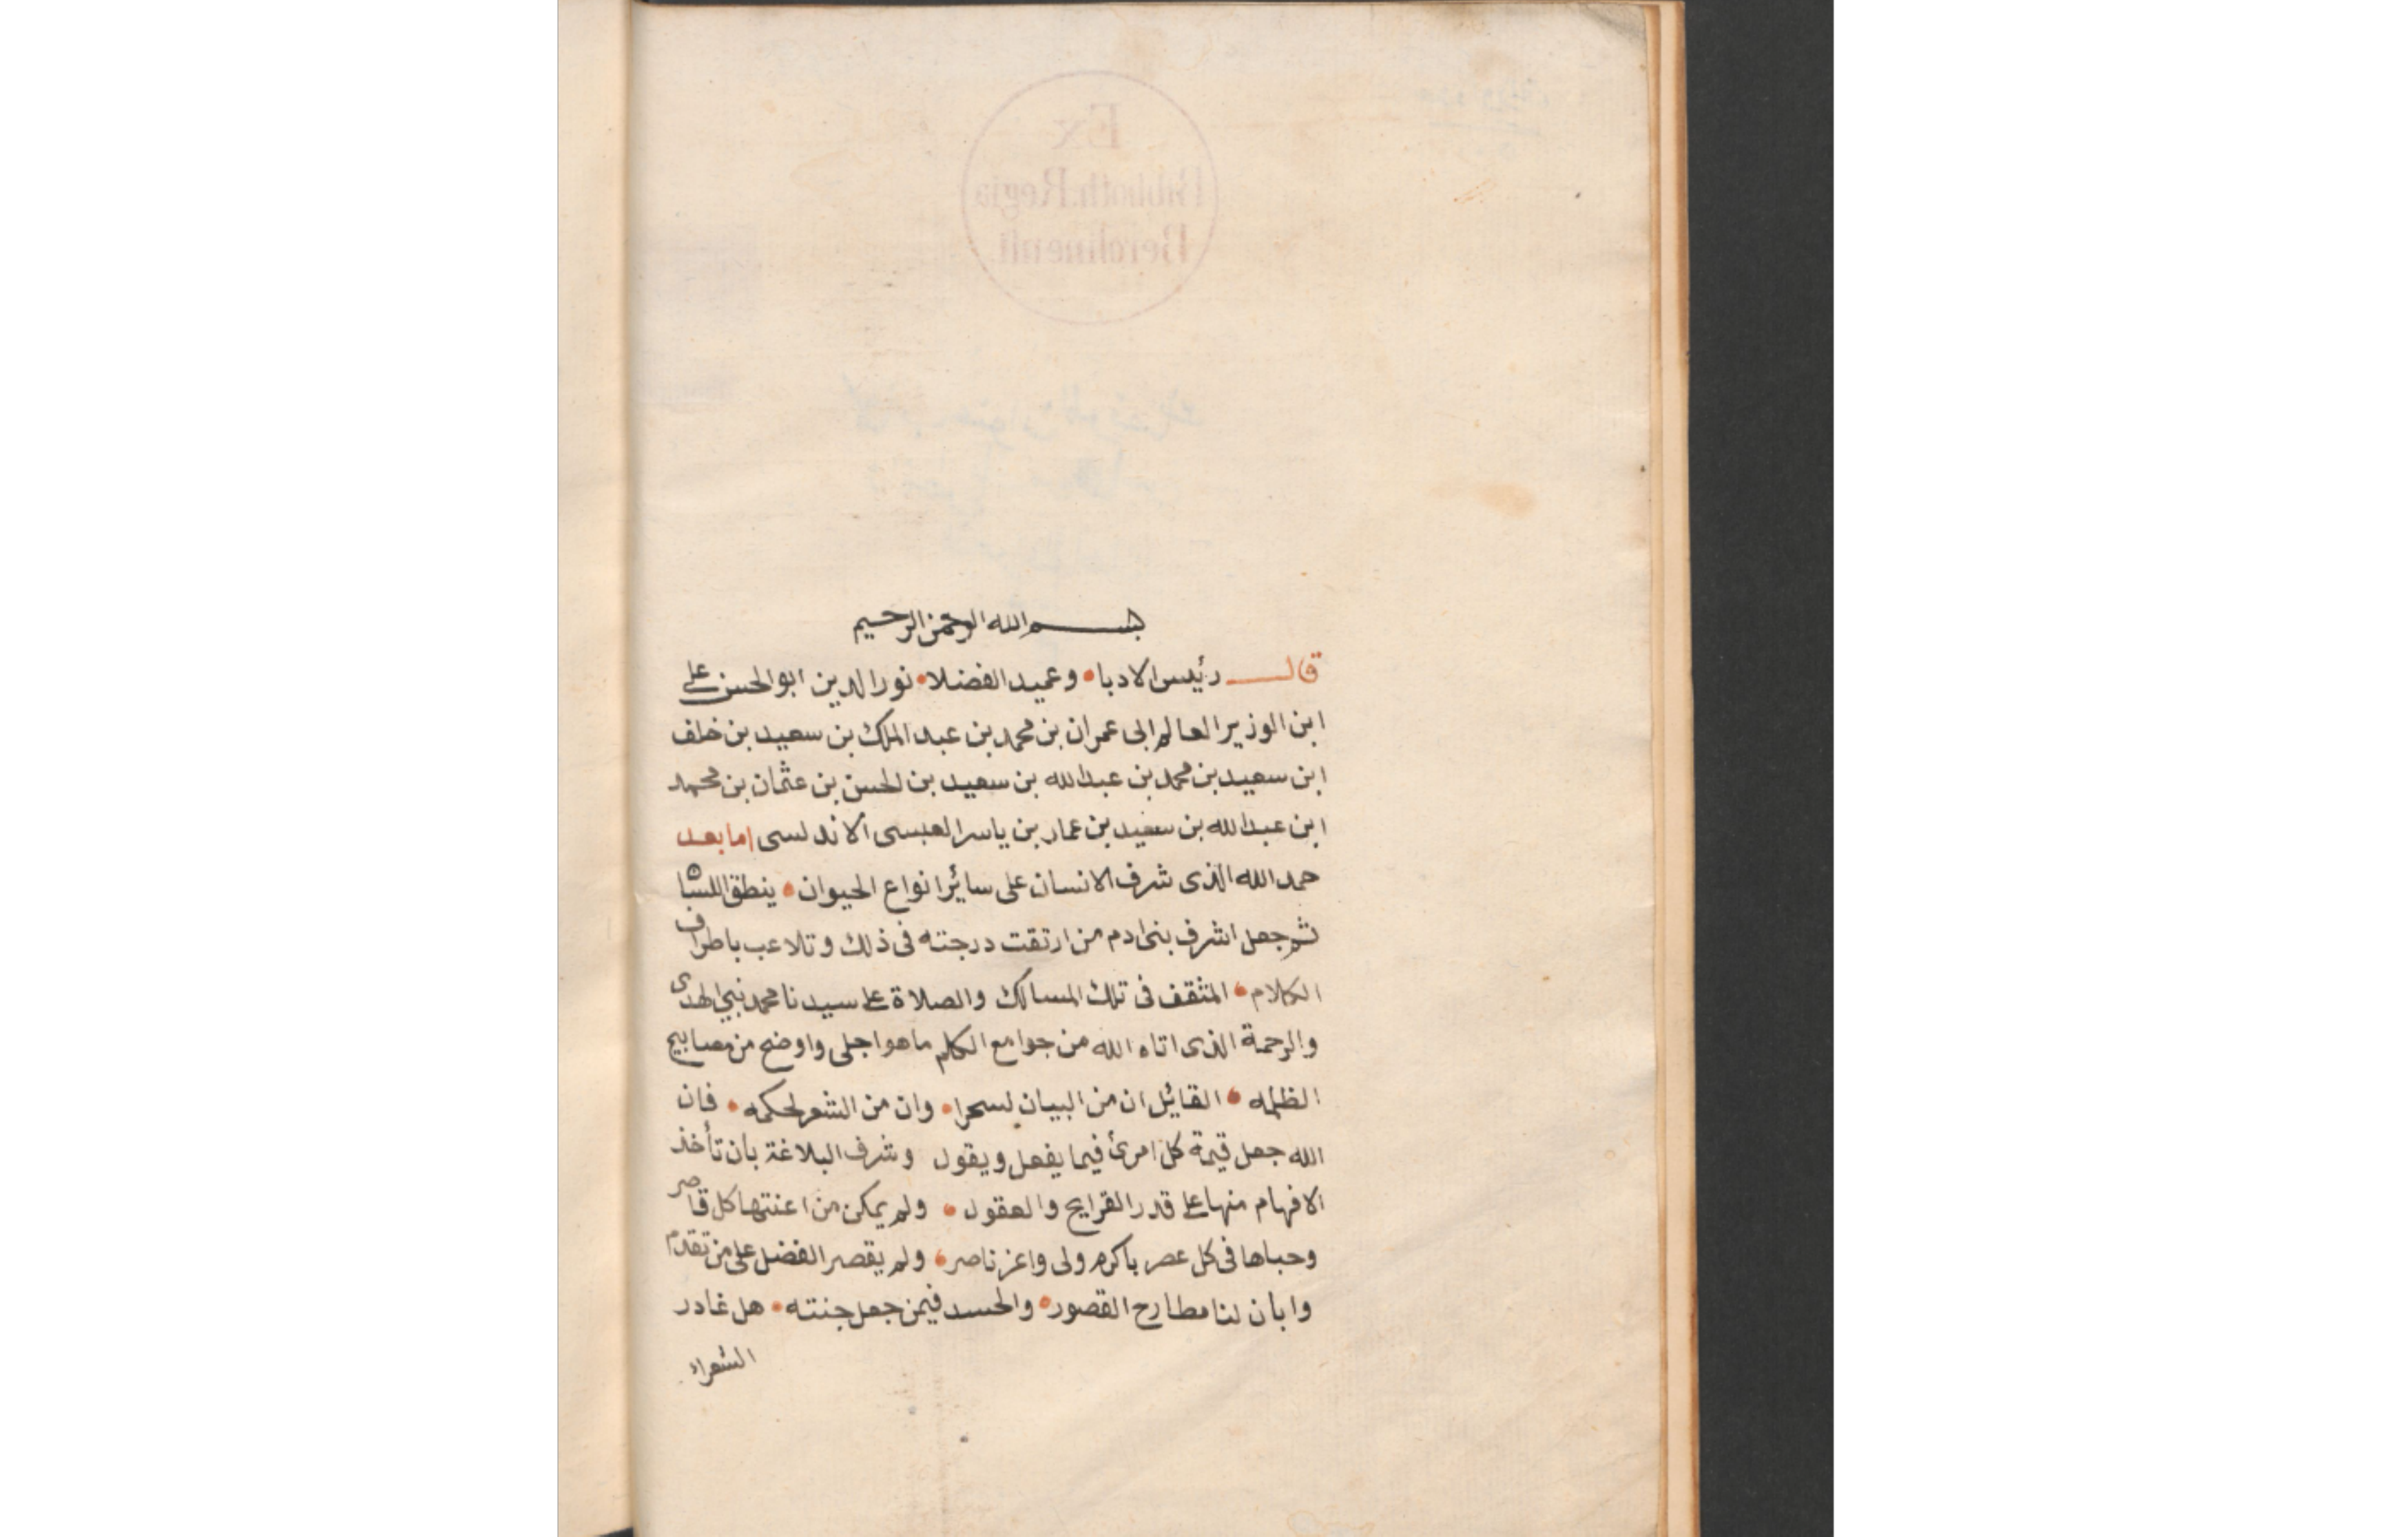 Ex
Biblioth. Regia
Berolinensi.
بسم الله الرحمن الرحيم
قال رئيس الادبا • وعميد الفضلا • نور الدين ابو الحسن على
ابن الوزير العالم ابى عمران بن محمد بن عبد الملك بن سعيد بن خلف
ابن سعيد بن محمد بن عبد الله بن سعيد بن الحسن بن عثمان بن محمد
ابن عبد الله بن سعيد بن عمار بن ياسر العبسى الاندلسى اما بعد
حمد الله الذى شرف الانسان على سائر انواع الحيوان • ينطق اللسان
ثم جعل اشرف بنى ادم من ارتقت درجته فى ذلك وتلاعب باطراف
الكلام • المثقف فى تلك المسالك والصلاة على سيدنا محمد نبى الهدى
والرحمة الذى اتاه الله من جوامع الكلم ما هو اجلى واوضح من مصابيح
الظلمه • القائل ان من البيان لسحرا • وان من الشعر لحكمه • فان
الله جعل قيمة كل امرئ فيما يفعل ويقول وشرف البلاغة بان تأخذ
الافهام منها على قدر القرايح والعقول • ولم يمكن من اعنتها كل قاصر
وحباها فى كل عصر باكرم ولى واعز ناصر • ولم يقصر الفضل على من تقدم
وابان لنا مطارح القصور • والحسد فيمن جعل جنته • هل غادر
الشعراء